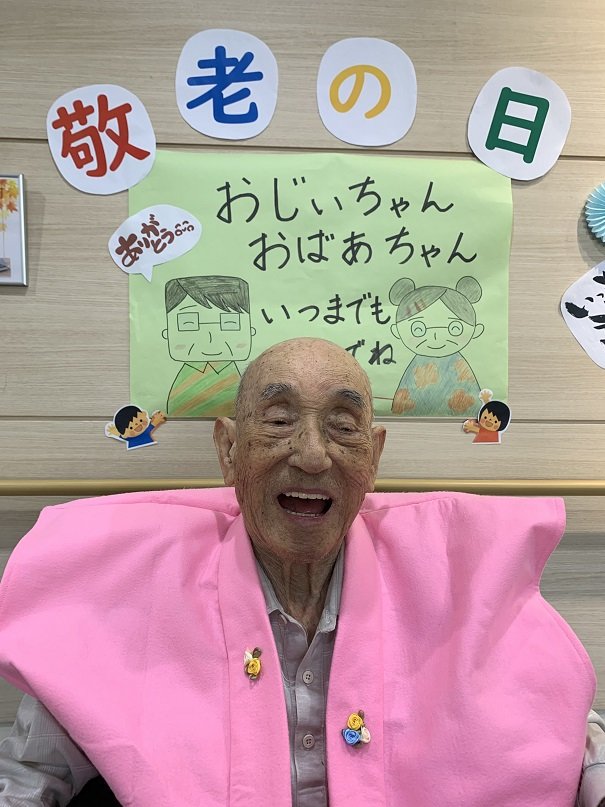 敬老の日
おじぃちゃん
おばあちゃん
ありが
とう
いつまでも
でね